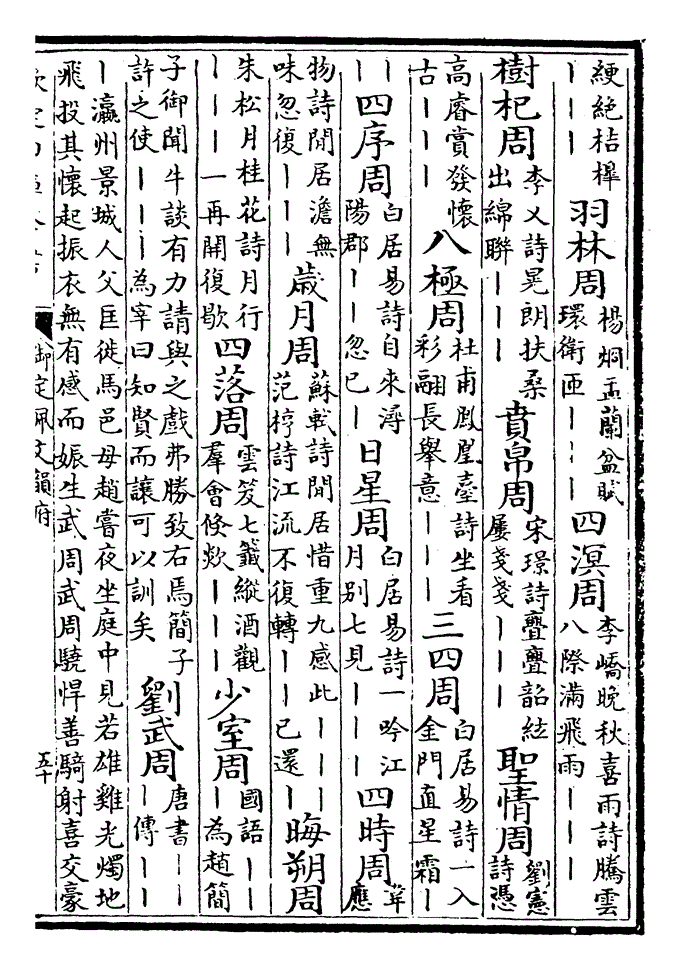 綆絕桔槹｜｜｜羽林周楊烱盂蘭盆賦環衛匝｜｜｜四溟周李嶠晚秋喜雨詩騰雲八際滿飛雨｜｜｜
樹杞周李乂詩晃朗扶桑出綿聯｜｜｜賁帛周宋璟詩亹亹韶絃屢戔戔｜｜｜聖情周劉憲詩憑
高睿賞發懷古｜｜｜八極周杜甫鳳凰臺詩坐看彩翮長舉意｜｜｜三四周白居易詩一入金門直星霜｜
｜｜四序周白居易詩自來潯陽郡｜｜忽已｜日星周白居易詩一吟江月別七見｜｜｜四時周韋應
物詩閒居澹無味忽復｜｜｜歲月周蘇軾詩閒居惜重九感此｜｜｜范梈詩江流不復轉｜｜已還｜晦朔周
朱松月桂花詩月行｜｜｜一再開復歇四落周雲笈七籤縱酒觀羣會倏欻｜｜｜少室周國語｜｜｜為趙簡
子御聞牛談有力請與之戲弗勝致右焉簡子許之使｜｜｜為宰曰知賢而讓可以訓矣劉武周唐書｜｜｜傳｜｜
｜瀛州景城人父匡徙馬邑母趙嘗夜坐庭中見若雄雞光燭地飛投其懷起振衣無有感而娠生武周武周驍悍善騎射喜交豪
欽定四庫全書
御定佩文韻府
五十